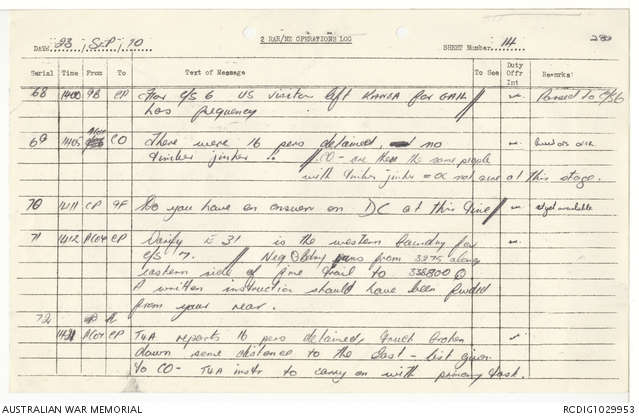 2 RAR/NZ OPERATIONS LOG
DATE 23 / SEP / 70
SHEET Number 14
280
Serial Time From To Text of Message To See Duty Offr Int Remarks
68 1400 9B CP For c/s 6 US visitor left KANGA for
has frequency Passed to c/s 6
69 1405 CO There were 16 pers detained, no
timber jinker // CO - are these the same people
with timber jinker = α not sure at this stage.
70 1411 CP 9F Do you have an answer on DC at this time // not yet available
71 1412 CP Clarify E 31 is the western boundry for
c/s 7. // Neg Q bdry runs from 3275 along
eastern side of fire trail to 338800 Q
A written instruction should have been fwded
from your rear.
72
CP T4A reports 16 pers detained, truck broken
down some distance to the East - list given
to CO - T4A instr to carry on with primary task.
AUSTRALIAN WAR MEMORIAL
RCDIG1029953